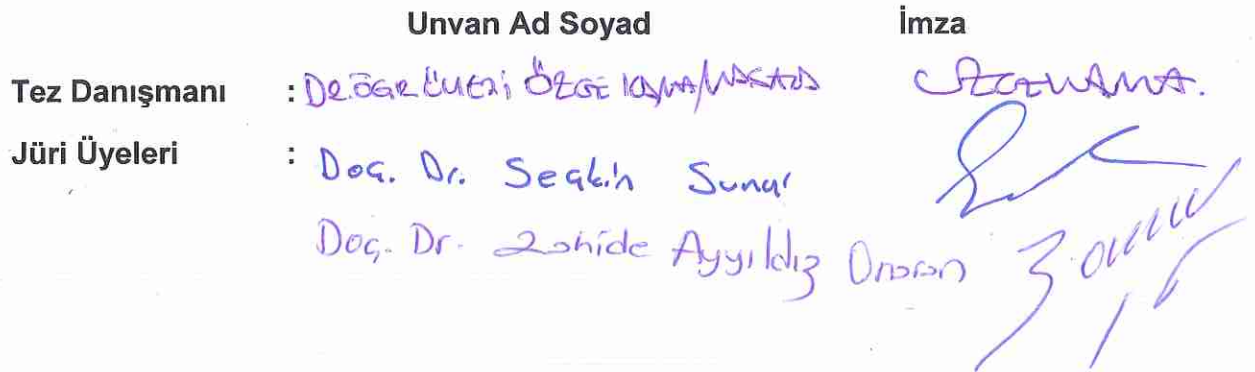 Unvan Ad Soyad İmza
Tez Danışmanı : DR. ÖĞR. ÜYESİ ÖZGE
Jüri Üyeleri : Doç. Dr. Seçkin Sunar
Doç. Dr. Zahide Ayyıldız Onaran